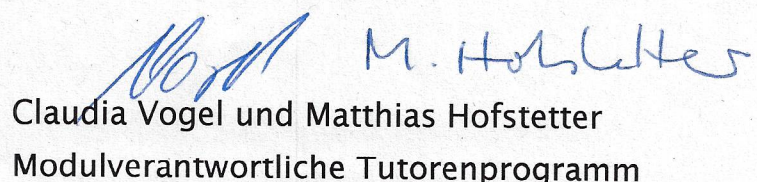 Vogel M. Hofstetter
Claudia Vogel und Matthias Hofstetter
Modulverantwortliche Tutorenprogramm